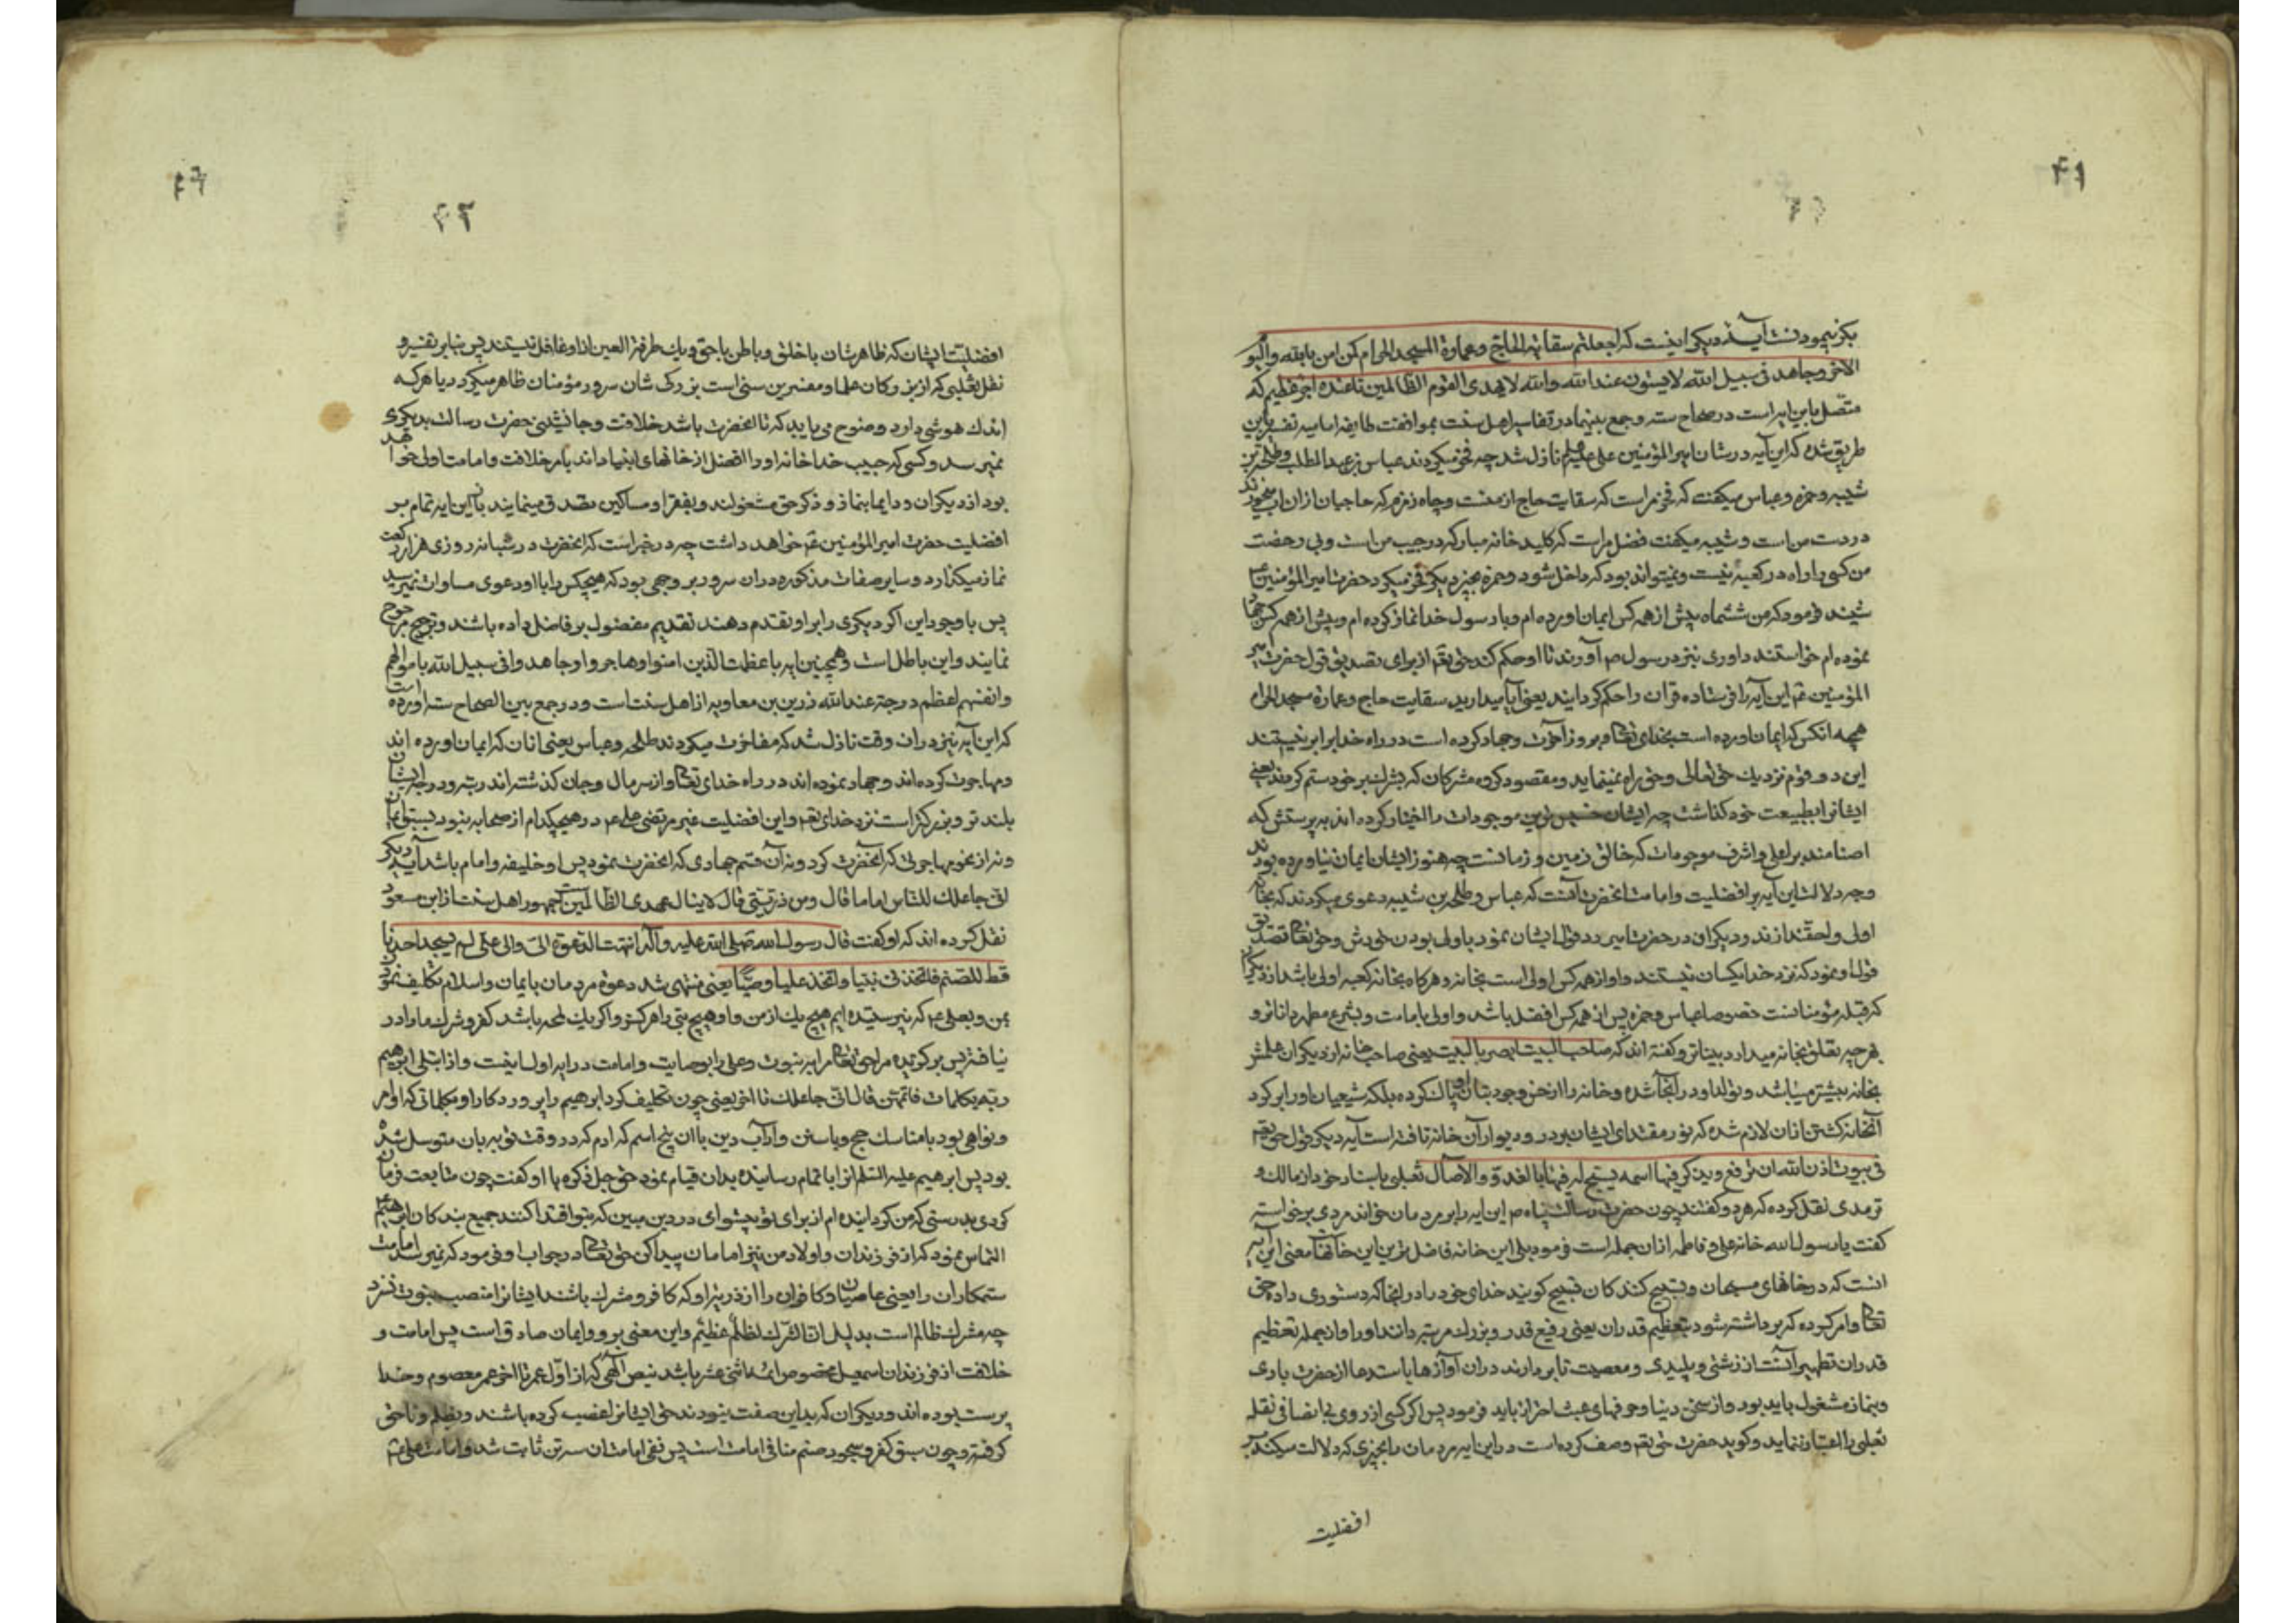 ۴۱
بکز نیمودنست آیهٔ دیکر اینست که اجعلتم سقایة الحاج وعمارة المسجد الحرام کمن امن بالله والیوم
الاخر وجاهد فی سبیل الله لا یستون عند الله والله لا یهدی القوم الظالمین تا عنده اجر عظیم که
متصل باین ایه است در صحاح سته وجمع بینهما در تفاسیر اهل سنت بموافقت طایفه امامیه تفسیر باین
طریق شده که این آیه در شان امیر المؤمنین علی علیه السلم نازل شد چه فخر میکردند عباس بن عبد المطلب وطلحة بن
شیبه وحمزه وعباس میکفت که فخر مراست که سقایت حاج از منست وچاه زمزم که حاجیان ازان اب میخورند
در دست من است و شیبه میکفت فضل مراست که کلید خانه مبارکه در جیب من است وبی رخصت
من کسی را راه در کعبه نیست ونمیتواند بود که داخل شود وحمزه بچیز دیکر فخر میکرد حضرت امیر المؤمنین ع
شنید فرمود که من ششماه پیش از همه کس ایمان اورده ام وبا رسول خدا نماز کرده ام وپیش از همه کس جهاد
نموده ام خواستند داوری نیز در رسول ص آورند تا او حکم کند حق تع از برای تصدیق قول حضرت امیر
المؤمنین ع این آیه را فرستاده قران را حکم کردانید یعنی آیا میدارید سقایت حاج وعمارة مسجد الحرام
همچه انکس که ایمان اورده است بخدای تعالی وبروز آخرت وجهاد کرده است در راه خدا برابر نیستند
این دو قوم نزدیک حق تعالی وحق راه ننماید ومقصود کروه مشرکان که بشرک بر خود ستم کردند یعنی
ایشانرا بطبیعت خود کذاشت چه ایشان خسیس ترین موجودات را اختیار کرده اند به پرستش که
اصنامند بر اعلی واشرف موجودات که خالق زمین و زمانست چه هنوز ایشان ایمان نیاورده بودند
وجه دلالت این آیه بر افضلیت وامامت انحضرت آنست که عباس وطلحه بن شیبه دعوی میکردند که بخانه
اولی واحقند ازند ودیکران در حضرت امیر رد قول ایشان نمود باولی بودن خودش وحق تعالی تصدیق
قول او نمود که نزد خدا یکسان نیستند واو از همه کس اولی است بخانه وهرکاه بخانه کعبه اولی باشد از دیکران
که قبله مؤمنانست خصوصا عباس وحمزه پس از همه کس افضل باشد واولی بامامت وبشرع مطهر داناتر و
بهر چیه تعلق بخانه میدارد بیناتر وکفته اند که صاحب البیت ابصر بالبیت یعنی صاحب خانه از دیکران علمش
بخانه بیشتر میباشد وتولد او در انجا شده وخانه را از خس وجود بتان او پاک کرده بلکه شیعیان اورا بر کرد
آنخانه کشتن ازان لازم شده که نور مقتدای ایشان بر در ودیوار آن خانه تافته است آیه دیکر قول حق تع
فی بیوت اذن الله ان ترفع ویذکر فیها اسمه یسبح له فیها بالغدو والاصال ثعلبی باسناد خود از مالک و
ترمدی نقل کرده که هر دو کفتند چون حضرت رسالت پناه ص این ایه را بر مردمان خواند مردی برخواست
کفت یا رسول الله خانه علی وفاطمه ازان جمله است فرمود بلی این خانه فاضل ترین این خانهاست معنی این آیه
انست که در خانهای مسلمان وتسبیح کنندکان تسبیح کویند خدای خود را در انجا که دستوری داده حق
تعالی وامر کرده که برداشته شود بتعظیم قدر ان یعنی رفیع قدر وبزرک مرتبه دانند اورا وازجمله تعظیم
قدر ان تطهیر آنست از زشتی وپلیدی و معصیت تا بردارند دران آوازها باستدعا از حضرت باری
وبنماز مشغول باید بود واز سخن دنیا وحرفهای عبث احتراز باید فرمود پس اکر کسی از روی بی انصافی نقل
ثعلبی را اعتبار ننماید وکوید حضرت حق تع وصف کرده است در این ایه مردمان را بچیزی که دلالت میکند بر
افضلیت
۴۲
افضلیت ایشان که ظاهر شان با خلق و باطن با حق ویک طرفة العین از او غافل نیستند پس بنابر تفسیر و
نقل ثعلبی که از بزرکان علما ومفسرین سنی است بزرکی شان سرور مؤمنان ظاهر میکردد یا هرکه
اندک هوشی دارد وضوح می یابد که تا انحضرت باشد خلافت وجانشینی حضرت رسالت بدیکری
نمیرسد وکسی که حبیب خدا خانه اورا افضل از خانهای انبیا داند بامر خلافت وامامت اولی خواهد
بود از دیکران و دایما بنماز و ذکر حق مشغولند وبفقرا ومساکین تصدق مینمایند باز این ایه تمام بر
افضلیت حضرت امیر المؤمنین ع خواهد داشت چه در خبر است که انحضرت در شبانه روزی هزار رکعت
نماز میکذارد وسایر صفات مذکوره دران سرور بر وجهی بود که هیچکس را با او دعوی مساوات نمیرسد
پس با وجود این اکر دیکری را بر او تقدم دهند تقدیم مفضول بر فاضل داده باشند وترجیح مرجوح
نمایند واین باطل است وهمچنین ایه با عظمت الذین امنوا وهاجروا وجاهدوا فی سبیل الله باموالهم
وانفسهم اعظم درجة عند الله زرین بن معاویه از اهل سنت است ودر جمع بین الصحاح سته اورده است
که این آیه نیز دران وقت نازل شد که مفاخرت میکردند طلحه وعباس یعنی انان که ایمان اورده اند
ومهاجرت کرده اند وجهاد نموده اند در راه خدای تعالی واز سر مال وجان کذشته اند رتبه ودرجه ایشان
بلند تر وبزرکتر است نزد خدای تع واین افضلیت غیر مرتضی علی ع در هیچکدام از صحابه نبود بسبق ایمان
ونه از نحو مهاجرتی که آنحضرت کرد ونه آن قسم جهادی که انحضرت نمود پس او خلیفه وامام باشد آیه دیکر
انی جاعلک للناس اماما قال ومن ذریتی قال لا ینال عهدی الظالمین جمهور اهل سنت از ابن مسعود
نقل کرده اند که او کفت قال رسول الله صلی الله علیه وآله انتهت الدعوة الی والی علی لم یسجد احدنا
قط للصنم فاتخذنی نبیا واتخذ علیا وصیا یعنی منتهی شد دعوة مردمان بایمان واسلام تکلیف نمود
بمن وبعلی ع که نپرستیده ایم هیچ یک از من واو هیچ بتی را هرکز واکر یک لمحه باشد کفر وشرک ما را در
نیافته پس برکزیده مرا حق تعالی مرا به نبوت وعلی را بوصایت وامامت در ایه اول اینست واذ ابتلی ابرهیم
ربه بکلمات فاتمهن قال انی جاعلک تا اخر یعنی چون تکلیف کرد ابرهیم را پروردکار او بکلماتی که اوامر
ونواهی بود بامناسک حج ویا سنن وآداب دین یا ان پنج اسم که ادم که در وقت توبه بان متوسل شده
بود پس ابرهیم علیه السلم انرا باتمام رسانیده بدان قیام نمود حق جل ذکره با او کفت چون متابعت فرمان
کردی بدرستی که من کردانیده ام از برای تو پیشوای در دین مبین که بتو اقتدا کنند جمیع بندکان ابرهیم ع
التماس نمود که از فرزندان واولاد من نیز امامان پیدا کن حق تعالی در جواب او فرمود که نمیرسد امامت
ستمکاران را یعنی عاصیان وکافران را از ذریه او که کافر ومشرک باشند ایشانرا منصب نبوت نسزد
چه مشرک ظالم است بدلیل ان الشرک لظلم عظیم واین معنی بر و وایمان صادق است پس امامت و
خلافت از فرزندان اسمعیل مخصوص ائمه اثنی عشر باشد بنص آلهی که از اول عمر تا اخر عمر معصوم وخدا
پرست بوده اند ودیکران که بداین صفت نبودند حق ایشانرا غصب کرده باشند وبظلم وناحق
کرفته وچون سبق کفر وسجود صنم منافی امامت است پس نفی امامت ان سه تن ثابت شد وامامت علی ع